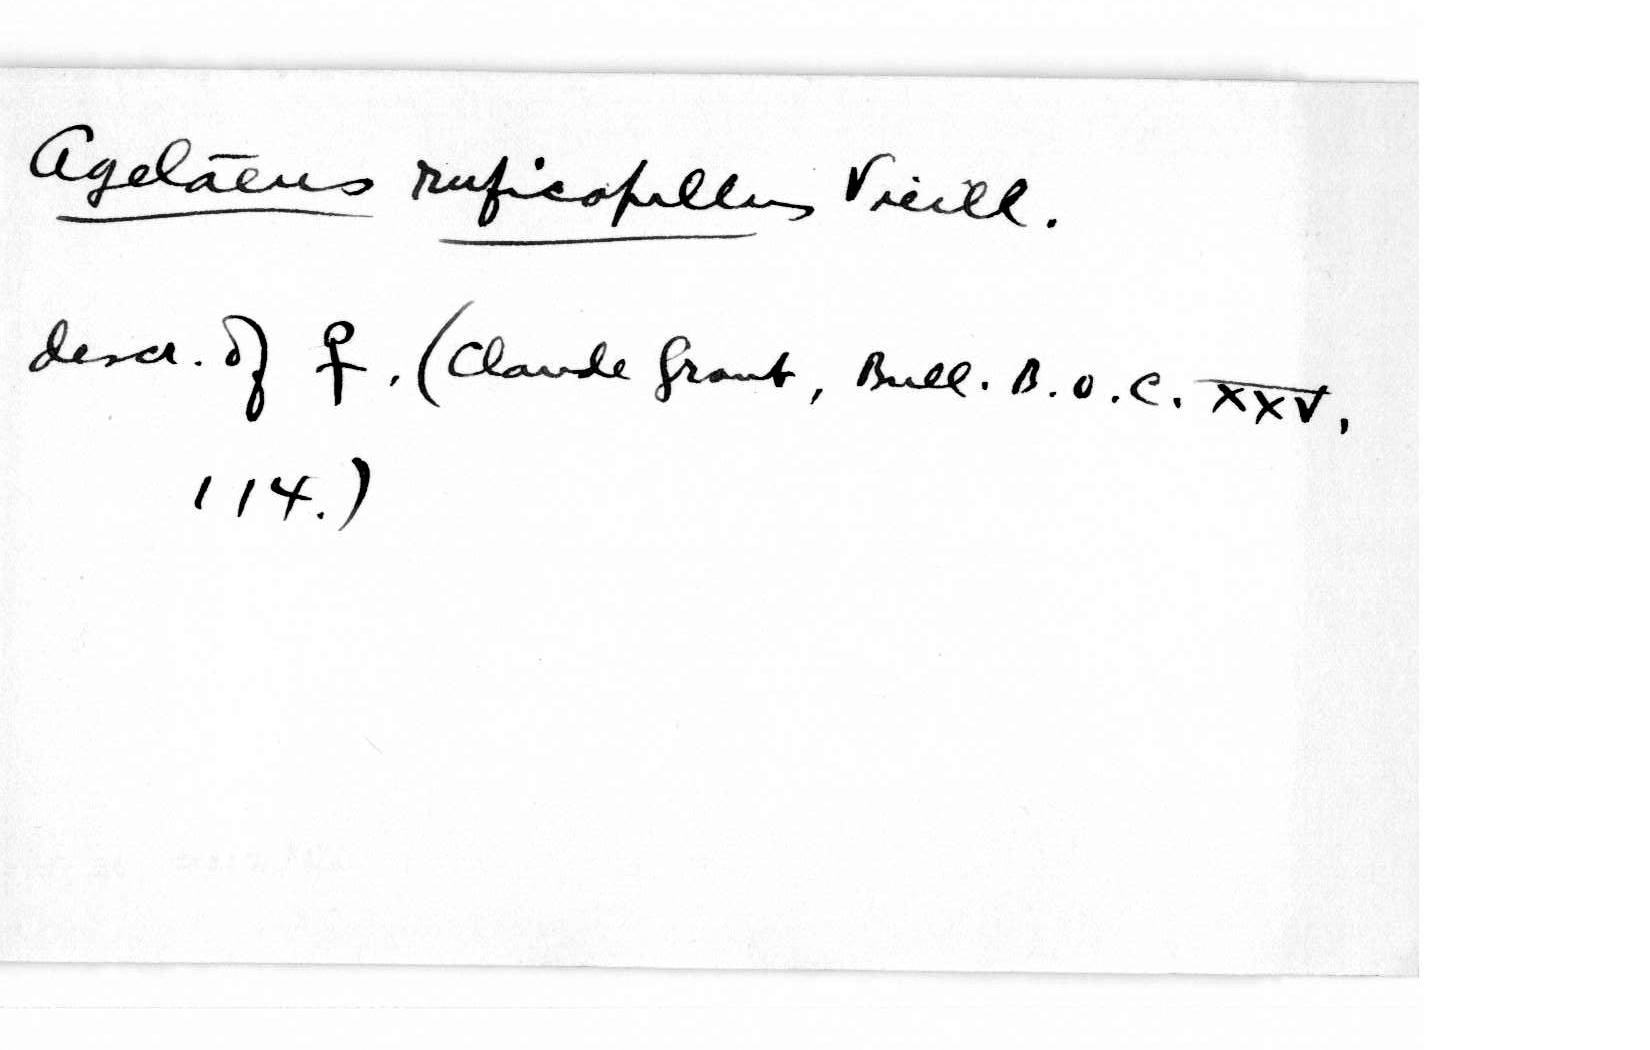 Agelaeus ruficapillus Vieill.
descr. of ♀. (Claude Grant, Bull. B.O.C. XXV,
114.)